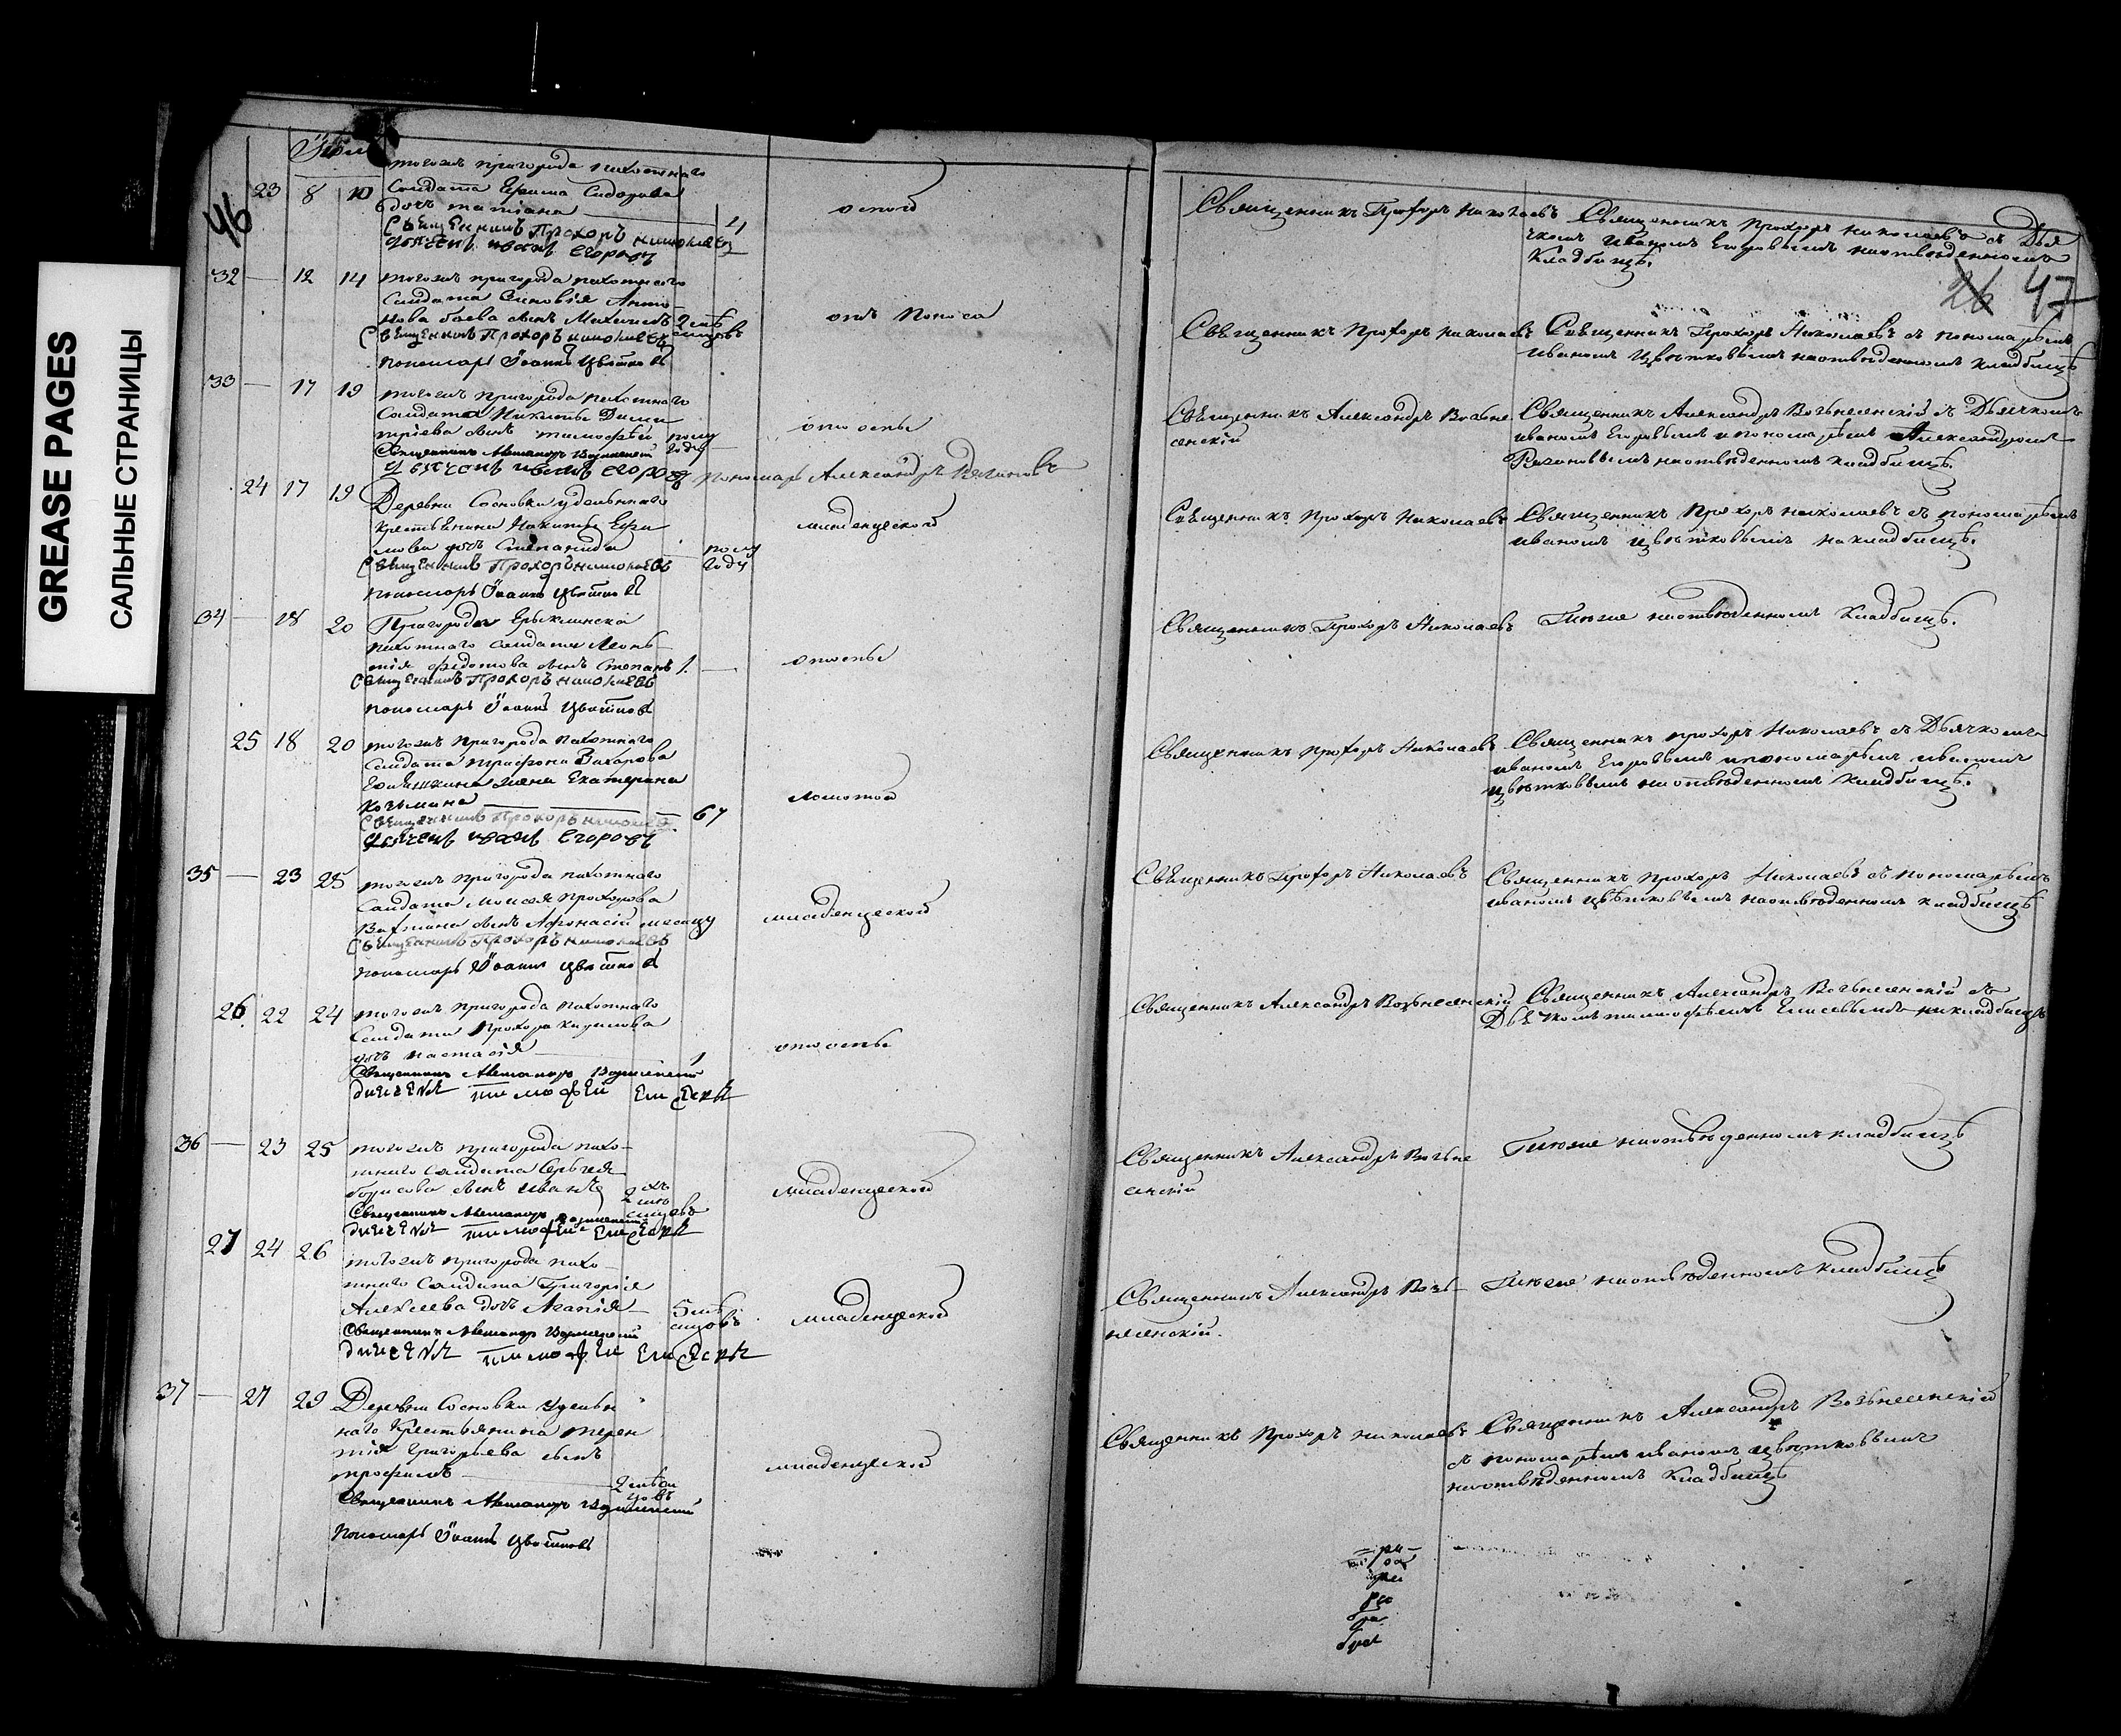 GREASE PAGES
САЛЬНЫЕ СТРАНИЦЫ
46
23 8 10
тогожъ пригорода пахотнаго
Солдата Ефима Сидорова
дочь татiана 4
Свещенникъ Прохоръ николаевъ
Дьячекъ иванъ егоровъ
оспой
Священникъ Прохоръ Николаевъ
Священникъ Прохоръ Николаевъ съ Дья
чкомъ Иваномъ Егоровымъ наотведенномъ
Кладбищѣ.
26 47
32 — 12 14
тогожъ пригорода пахотнаго
Солдата Антонова сынъ
2 месяцовъ
Свещенникъ Прохоръ николаевъ
пономарь Iоаннъ Цветковъ
отъ Поноса
Свещенникъ Прохоръ Николаевъ
Священникъ Прохоръ Николаевъ съ пономаремъ
иваномъ Цветковымъ наотведенномъ кладбищѣ
33 — 17 19
тогожъ пригорода пахотнаго
Солдата Никиты Дими
трiева сынъ тимофѣй полу
году
Священникъ Александръ Вознесенскiй
Дьячекъ иванъ егоровъ пономарь Александръ
отъ оспы
Свещенникъ Александръ Возне
сенскiй
Священникъ Александръ Вознесенскiй съ Дьячкомъ
иваномъ Егоровымъ и пономаремъ Александромъ
наотведенномъ кладбищѣ.
24 17 19
Деревни Сосновки удельнаго
крестьянина Никиты Ефи
мова дочь Степанида полу
году
Свещенникъ Прохоръ николаевъ
пономарь Iоаннъ Цветковъ
младенческой
Свещенникъ Прохоръ Николаевъ
Священникъ Прохоръ николаевъ съ пономаремъ
иваномъ Цветковымъ накладбищѣ.
34 — 18 20
Пригорода Ерыклинска
пахотнаго солдата Леонъ
тiя федотова сынъ Степанъ 1. —
Свещенникъ Прохоръ николаевъ
пономарь Iоаннъ Цветковъ
отъ оспы
Священникъ Прохоръ Николаевъ
Тѣже наотведенномъ Кладбищѣ.
25 18 20
тогожъ пригорода пахотнаго
Солдата трифона Захарова
жена Екатерина
козьмина 67
Свещенникъ Прохоръ николаевъ
Дьячекъ иванъ егоровъ
ломотой
Священникъ прохоръ Николаевъ
Священникъ прохоръ Николаевъ съ Дьячкомъ
иваномъ Егоровымъ и пономаремъ иваномъ
цветковымъ наотведенномъ кладбищѣ.
35 — 23 25
тогожъ пригорода пахотнаго
Солдата Моисея Прохорова
сынъ Афонасiй месяцу
Свещенникъ Прохоръ николаевъ
пономарь Iоаннъ Цветковъ
младенческой
Свещенникъ Прохоръ Николаевъ
Священникъ прохоръ Николаевъ съ пономаремъ
иваномъ цветковымъ наотведенномъ кладбищѣ
26 22 24
тогожъ пригорода пахотнаго
Солдата Прохора кирилова
дочь настасiя 1
Священникъ Александръ Вознесенскiй
дьячекъ тимофеи Елисеевъ
отъ оспы
Священникъ Александръ Возънесенскiй
Священникъ Александръ Возънесенскiй съ
Дьячкомъ тимофѣемъ Елисеевымъ накладбищѣ
36 — 23 25
тогожъ пригорода пахо
тнаго солдата Сергея
борисова сынъ иванъ 2хъ
месяцовъ
Священникъ Александръ Вознесенскiй
дьячекъ тимофеи Елисеевъ
младенческой
Священникъ Александръ Возне
сенскiй
Тѣже наотведенномъ кладбищѣ
27 24 26
тогожъ пригорода пахо
тнаго Солдата Григорiя
Алексеева дочь Агапiя 5 мѣ
сяцовъ
Священникъ Александръ Вознесенскiй
дьячекъ тимофеи Елисеевъ
младенческой
Священникъ Александръ Возъ
несенскiй.
Тѣже наотведенномъ кладбищѣ
37 — 27 29
Деревни Сосновки Удельн
наго Крестьянина терен
тiя Григорьева сынъ
трофимъ 2 месяцовъ
Священникъ Александръ Вознесенскiй
Пономарь Iоаннъ Цветковъ
младенческой
Священникъ Прохоръ николаевъ
Священникъ Александръ Возънесенскiй
съ пономаремъ иваномъ цветковымъ
наотведенномъ Кладбищѣ